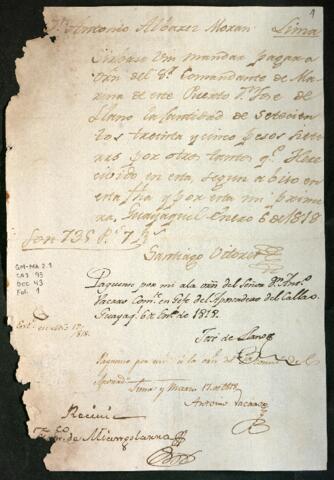 Dn. Antonio Albarez Moran Lima
Sirbase Vm mandar pagar a
orñ del Sr. Comandante de Ma
rina de este Puerto Dn. Jose de
Llano la cantidad de setecien
tos treinta y cinco pesos siete
rrs por otros tantos qe. He re
civido en esta, segun abiso en
esta fha y por esta mi primera
ra, Guayaquil Enero 6 de 1818
Son 735 Ps 7 Rs
Santiago
Paguese por mi ala orñ del Señor Dn. Anto.
Vacaro Come. en Gefe del Apostadero del Callao.
Guayaql. 6 de Eno. de 1818.
José de Llano
Paguese por mi a la orñ
Lima y Marzo 17 de 1818
Antonio Vacaro
Recivi
GM-MA 2.1
CAJ 93
DOC 43
Fol. 1
1